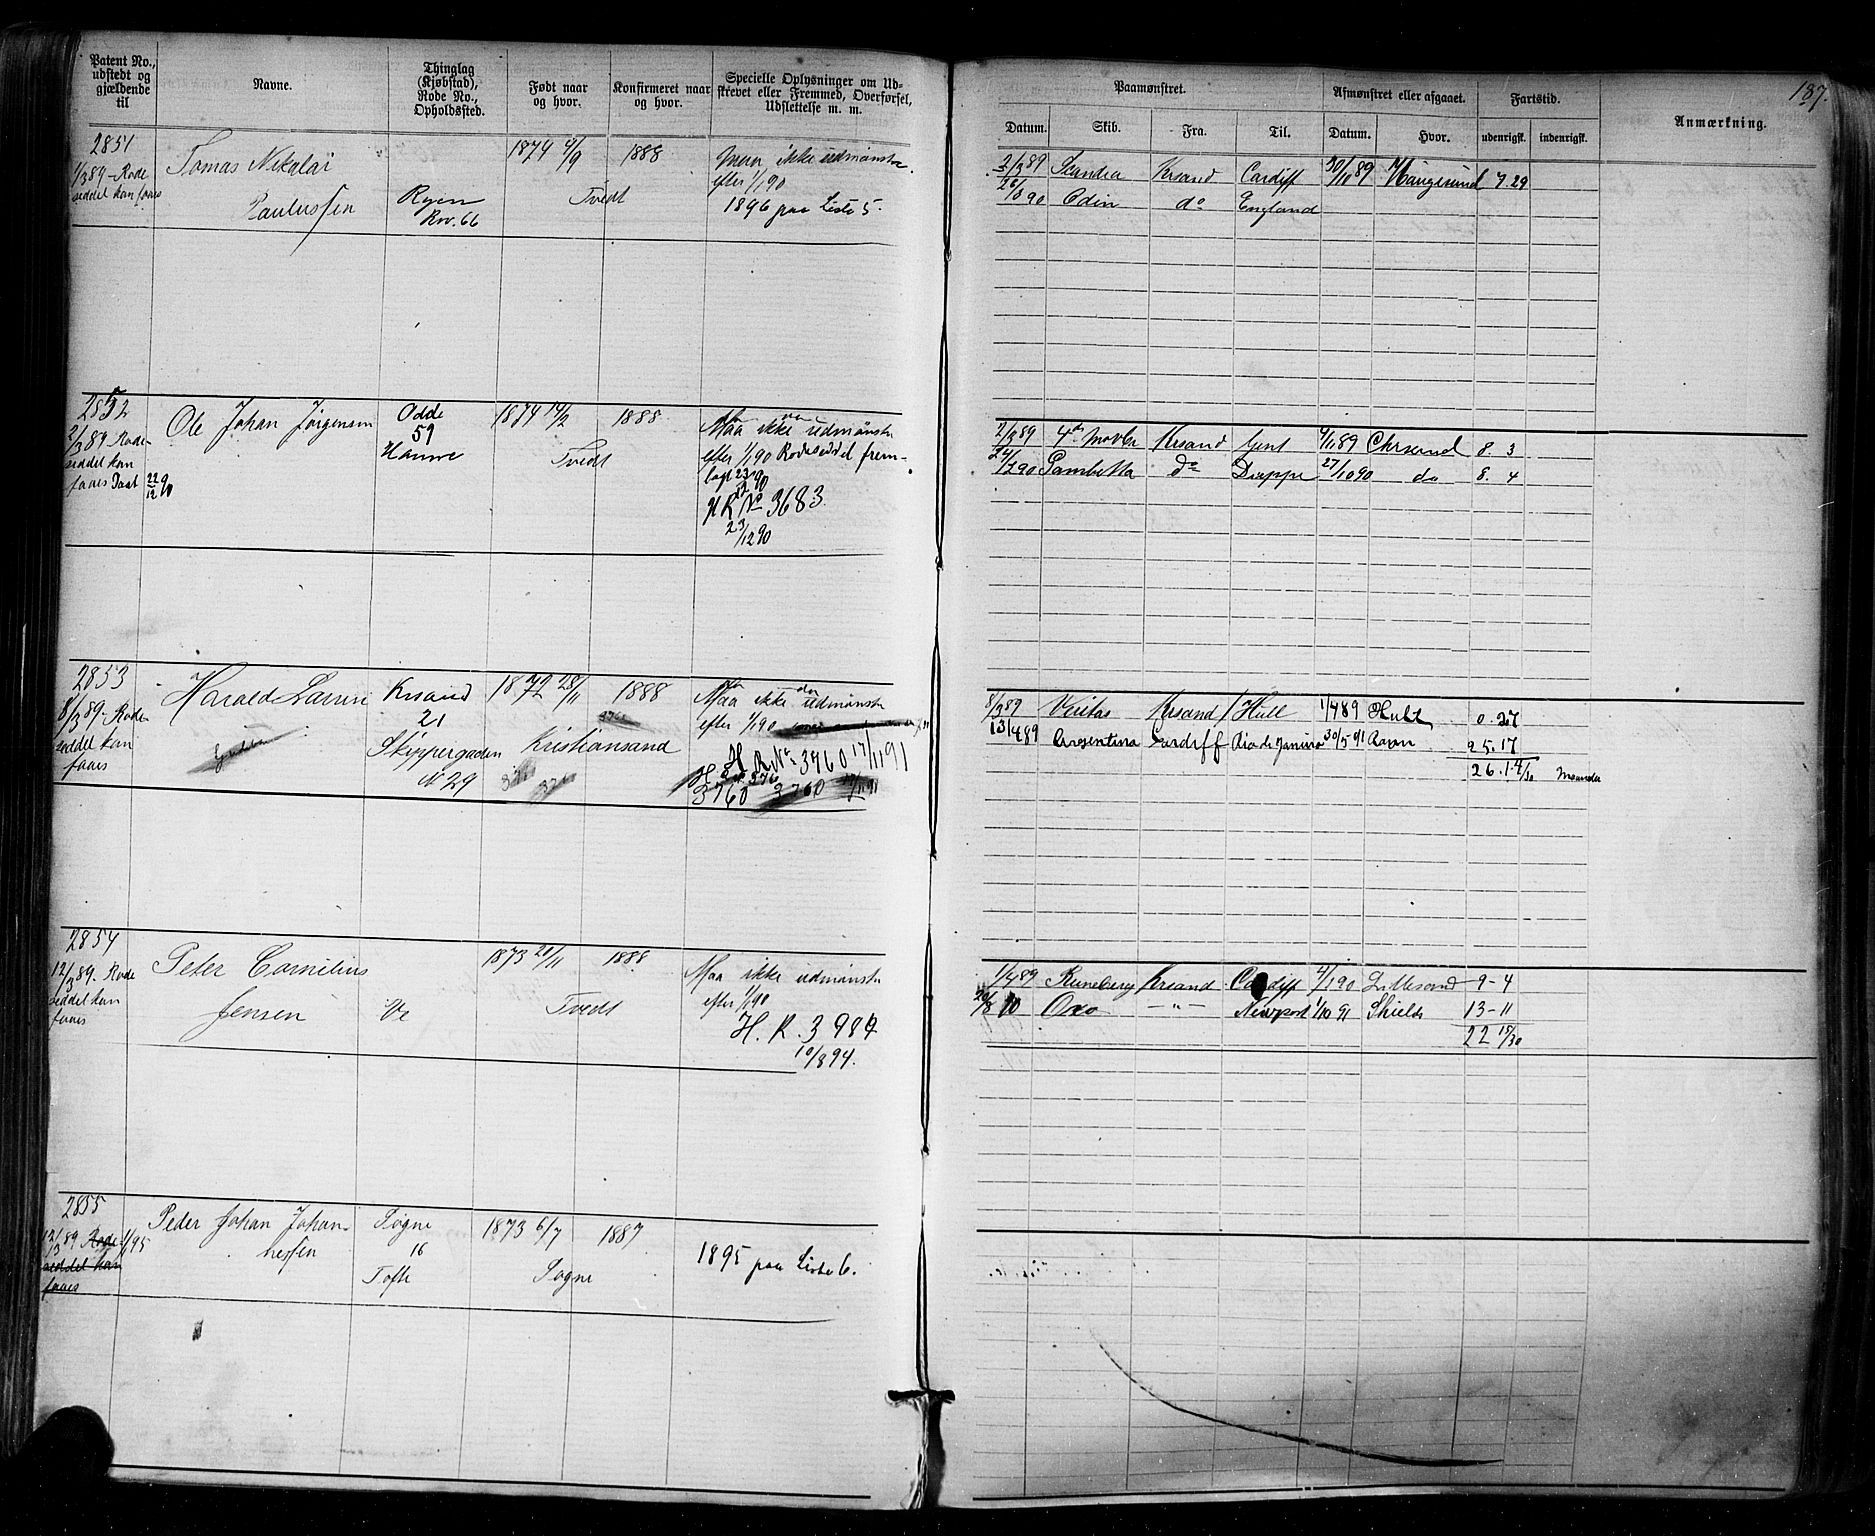 187.
Patent No., udstedt og gjældende til
Navne.
Thinglag (Kjøbstad), Rode No., Opholdssted.
Født naar og hvor.
Konfirmeret naar og hvor.
Specielle Oplysninger om Udskrevet eller Fremmed, Overførsel, Udslettelse m. m.
Paamønstret.
Afmønstret eller afgaaet.
Fartstid.
Anmærkning.
Datum. Skib. Fra. Til. Datum. Hvor. udenrigsk. indenrigsk.
2851
1/3 89 - Rode
seddel kan faaes
Tomas Nikolai
Paulussen
Ryen
Rv. 66
1874 4/9
Tvedt
1888
Maa ikke udmønstre
efter 1/1 90
1896 paa Liste 5.
2/3 89 Scandia Krsand Cardiff 30/10 89 Haugesund 7.29
26/8 90 Odin do England
2852
2/3 89 - Rode-
seddel kan
faaes
22/12 90
Ole Johan Jørgensen
Odde
59
1874 14/2
Tvedt
1888
Maa ikke udmønstre
efter 1/1 90 Rodeseddel frem-
lagt 23/12 90
H R No 3683.
23/12 90
2/3 89 4de Novbr Krsand Gent 4/11 89 Chrsand 8. 3
24/2 90 Gambetta do Dieppe 27/10 90 do 8. 4
2853
8/3 89 - Rode
seddel kan
faaes
Harald Larsen
Krsand
21
Skippergaden
N 29
1872 28/11
Kristiansand
1888
Maa ikke udmønstre
efter 1/1 90
H. R. No. 3760 17/11 91
3760 3760
8/3 89 Veritas Krsand Hull 1/4 89 Hull 0.27
13/4 89 Argentina Cardiff Rio de Janeiro 30/5 91 25.17
26.14/30 Maaneder
2854
12/3 89 - Rode
seddel kan
faaes
Peter Cornelius
Jensen
Ve
1873 20/11
Tvedt
1888
Maa ikke udmønstre
efter 1/1 90
H. R. 3984
10/3 94.
1/4 89 Runeberg Krsand Cardiff 4/1 90 Lillesand 9-4
20/8 90 Oxo -"- Newport 1/10 91 Shields 13-11
22 15/30
2855
12/3 89 Rode- 1/1 95
seddel kan
faaes
Peder Johan Johan-
nessen
Søgne
16
Tofte
1873 6/7
Søgne
1887
1895 paa Liste 6.